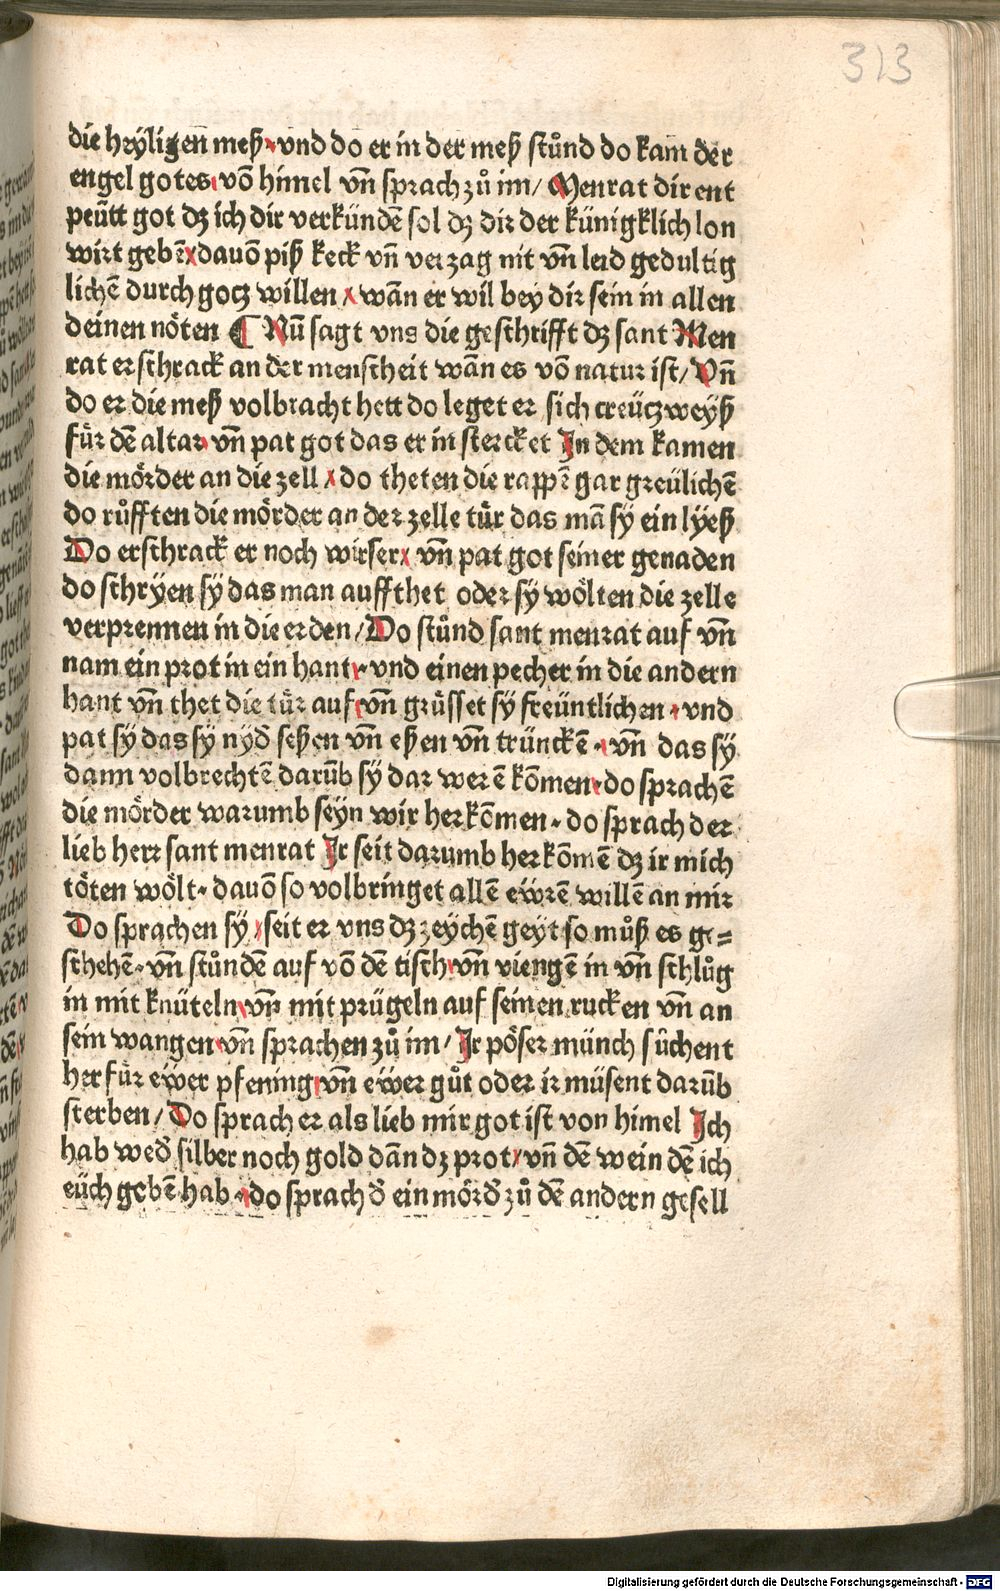 313
die heyligen meß·vnd do er in der meß stůnd do kam der
engel gotes·võ himel vñ sprach zů im/ Menrat dir ent
peütt got dz ich dir verkündẽ sol dz dir der künigklich lon
wirt gebẽ·dauõ piß keck vñ verzag nit vñ leid gedultig
lichẽ durch gotz willen·wañ er wil bey dir sein in allen
deinen nöten ¶ Nũ sagt vns die geschrifft dz sant Men
rat erschrack an der menscheit wañ es võ natur ist/ Vñ
do er die meß volbracht hett do leget er sich creützweyß
für dẽ altar·vñ pat got das er in stercket In dem kamen
die mörder an die zell·do theten die rappẽ gar greülichẽ
do růfften die mörder an der zelle tür das mã sy ein lyeß
Do erschrack er noch wirser·vñ pat got seiner genaden
do schryen sy das man auffthet oder sy wölten die zelle
verprennen in die erden/ Do stůnd sant menrat auf vñ
nam ein prot in ein hant·vnd einen pecher in die andern
hant vñ thet die tür auf·vñ grüsset sy freüntlichen·vnd
pat sy das sy nyd̕ seßen vñ eßen vñ trünckẽ·vñ das sy
dann volbrechtẽ darũb sy dar werẽ kõmen·do sprachẽ
die mörder warumb seyn wir herkõmen·do sprach der
lieb herr sant menrat Ir seit darumb herkõmẽ dz ir mich
töten wölt·dauõ so volbringet allẽ eẅrẽ willẽ an mir
Do sprachen sy·seit er vns dz zeychẽ geyt so můß es ge=
schehẽ·vñ stůndẽ auf võ dẽ tisch·vñ viengẽ in vñ schlůg
in mit knüteln·vñ mit prügeln auf seinen rucken vñ an
sein wangen·vñ sprachen zů im/ Ir pöser münch sůchent
herfür eẅer pfening·vñ eẅer gůt oder ir müsent darũb
sterben/ Do sprach er als lieb mir got ist von himel Ich
hab wed̕ silber noch gold dañ dz prot·vñ dẽ wein dẽ ich
eüch gebẽ hab·do sprach d̕ ein mörd̕ zů dẽ andern gesell
Digitalisierung gefördert durch die Deutsche Forschungsgemeinschaft - DFG